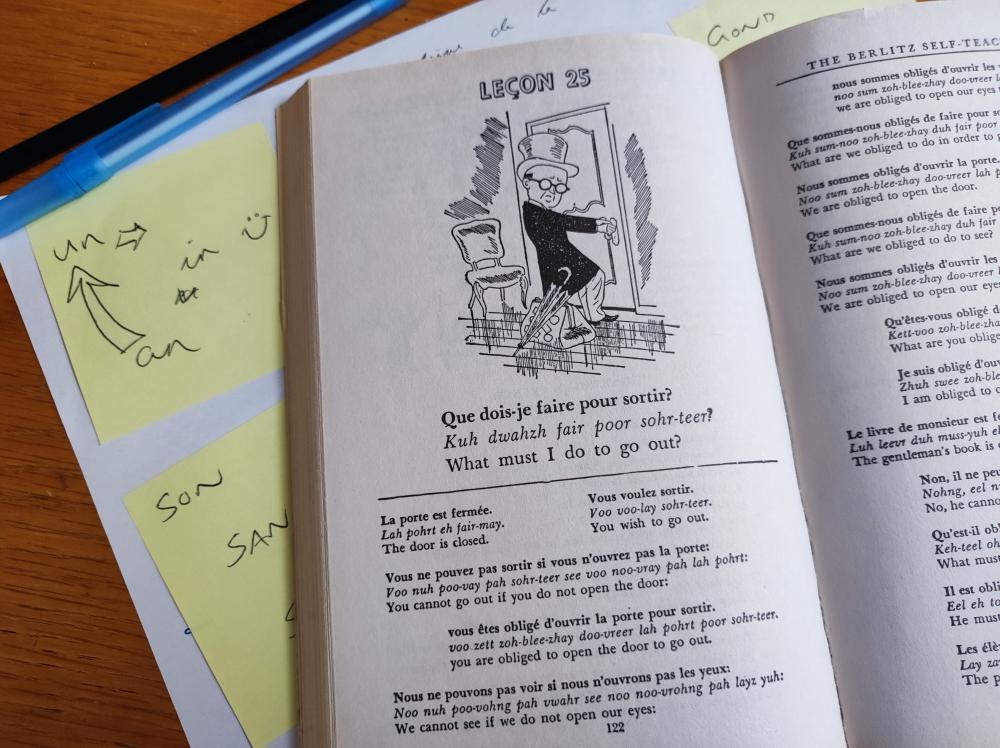 de la
GOND
un
in
an
SON
SAN
LEÇON 25
Que dois-je faire pour sortir?
Kuh dwahzh fair poor sohr-teer?
What must I do to go out?
La porte est fermée.
Lah pohrt eh fair-may.
The door is closed.
Vous voulez sortir.
Voo voo-lay sohr-teer.
You wish to go out.
Vous ne pouvez pas sortir si vous n'ouvrez pas la porte:
Voo nuh poo-vay pah sohr-teer see voo noo-vray pah lah pohrt:
You cannot go out if you do not open the door:
vous êtes obligé d'ouvrir la porte pour sortir.
voo zett zoh-blee-zhay doo-vreer lah pohrt poor sohr-teer.
you are obliged to open the door to go out.
Nous ne pouvons pas voir si nous n'ouvrons pas les yeux:
Noo nuh poo-vohng pah vwahr see noo noo-vrohng pah layz yuh:
We cannot see if we do not open our eyes:
122
THE BERLITZ SELF-TEAC
nous sommes obligés d'ouvrir les
noo sum zoh-blee-zhay doo-vreer
we are obliged to open our eyes
Que sommes-nous obligés de faire pour
Kuh sum-noo zoh-blee-zhay duh fair poor
What are we obliged to do in order to
Nous sommes obligés d'ouvrir la porte.
Noo sum zoh-blee-zhay doo-vreer lah
We are obliged to open the door.
Que sommes-nous obligés de faire
Kuh sum-noo zoh-blee-zhay duh fair
What are we obliged to do to see?
Nous sommes obligés d'ouvrir les
Noo sum zoh-blee-zhay doo-vreer
We are obliged to open our eyes
Qu'êtes-vous obligé
Kett-voo zoh-blee-zha
What are you oblige
Je suis obligé d'ou
Zhuh swee zoh-bl
I am obliged to
Le livre de monsieur est
Luh leevr duh muss-yuh
The gentleman's book is
Non, il ne peu
Nohng, eel
No, he canno
Qu'est-il ob
Keh-teel
What mus
Il est obli
Eel eh
He mus
Les élè
Lay za
The